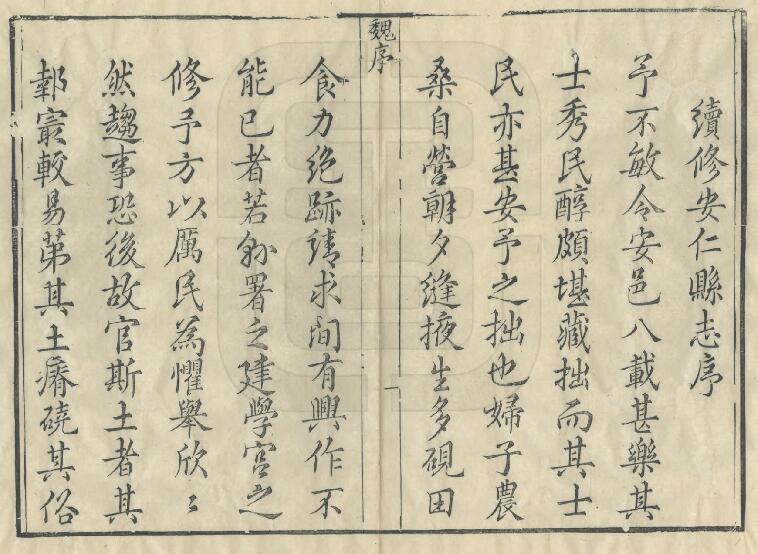 續修安仁縣志序
予不敏令安邑八載甚樂其
士秀民醇頗堪藏拙而其士
民亦甚安予之拙也婦子農
桑自營朝夕縫掖生多硯田
魏序
食力絶跡請求間有興作不
能已者若縣署之建學宮之
修予方以厲民為懼舉欣〻
然趨事恐後故官斯土者其
報最較易第其土瘠磽其俗